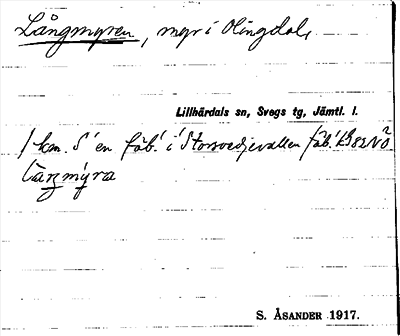 Långmyren, myr i Olingdal,
Lillhärdals sn, Svegs tg, Jämtl. l.
1 km. S en fäb. i Storvedjevallen fäb.
S. ÅSANDER 1917.